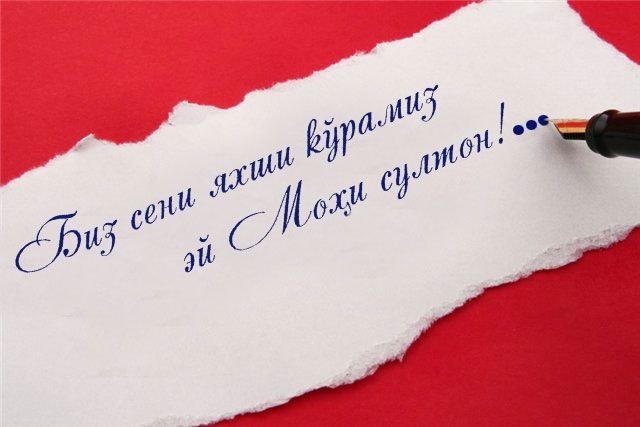 Биз сени яхши кўрамиз
эй Моҳи султон!...